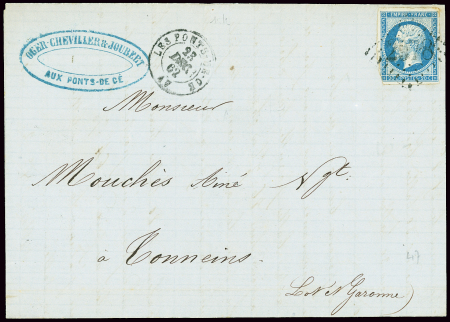 OGER-CHEVILLER & JOUBERT
AUX PONTS-DE-CÉ
LES PONTS-DE-CÉ
62
EMPIRE FRANC
Monsieur
Mouchès Ainé Ngt.
à Tonneins
Lot N Garonne)
47